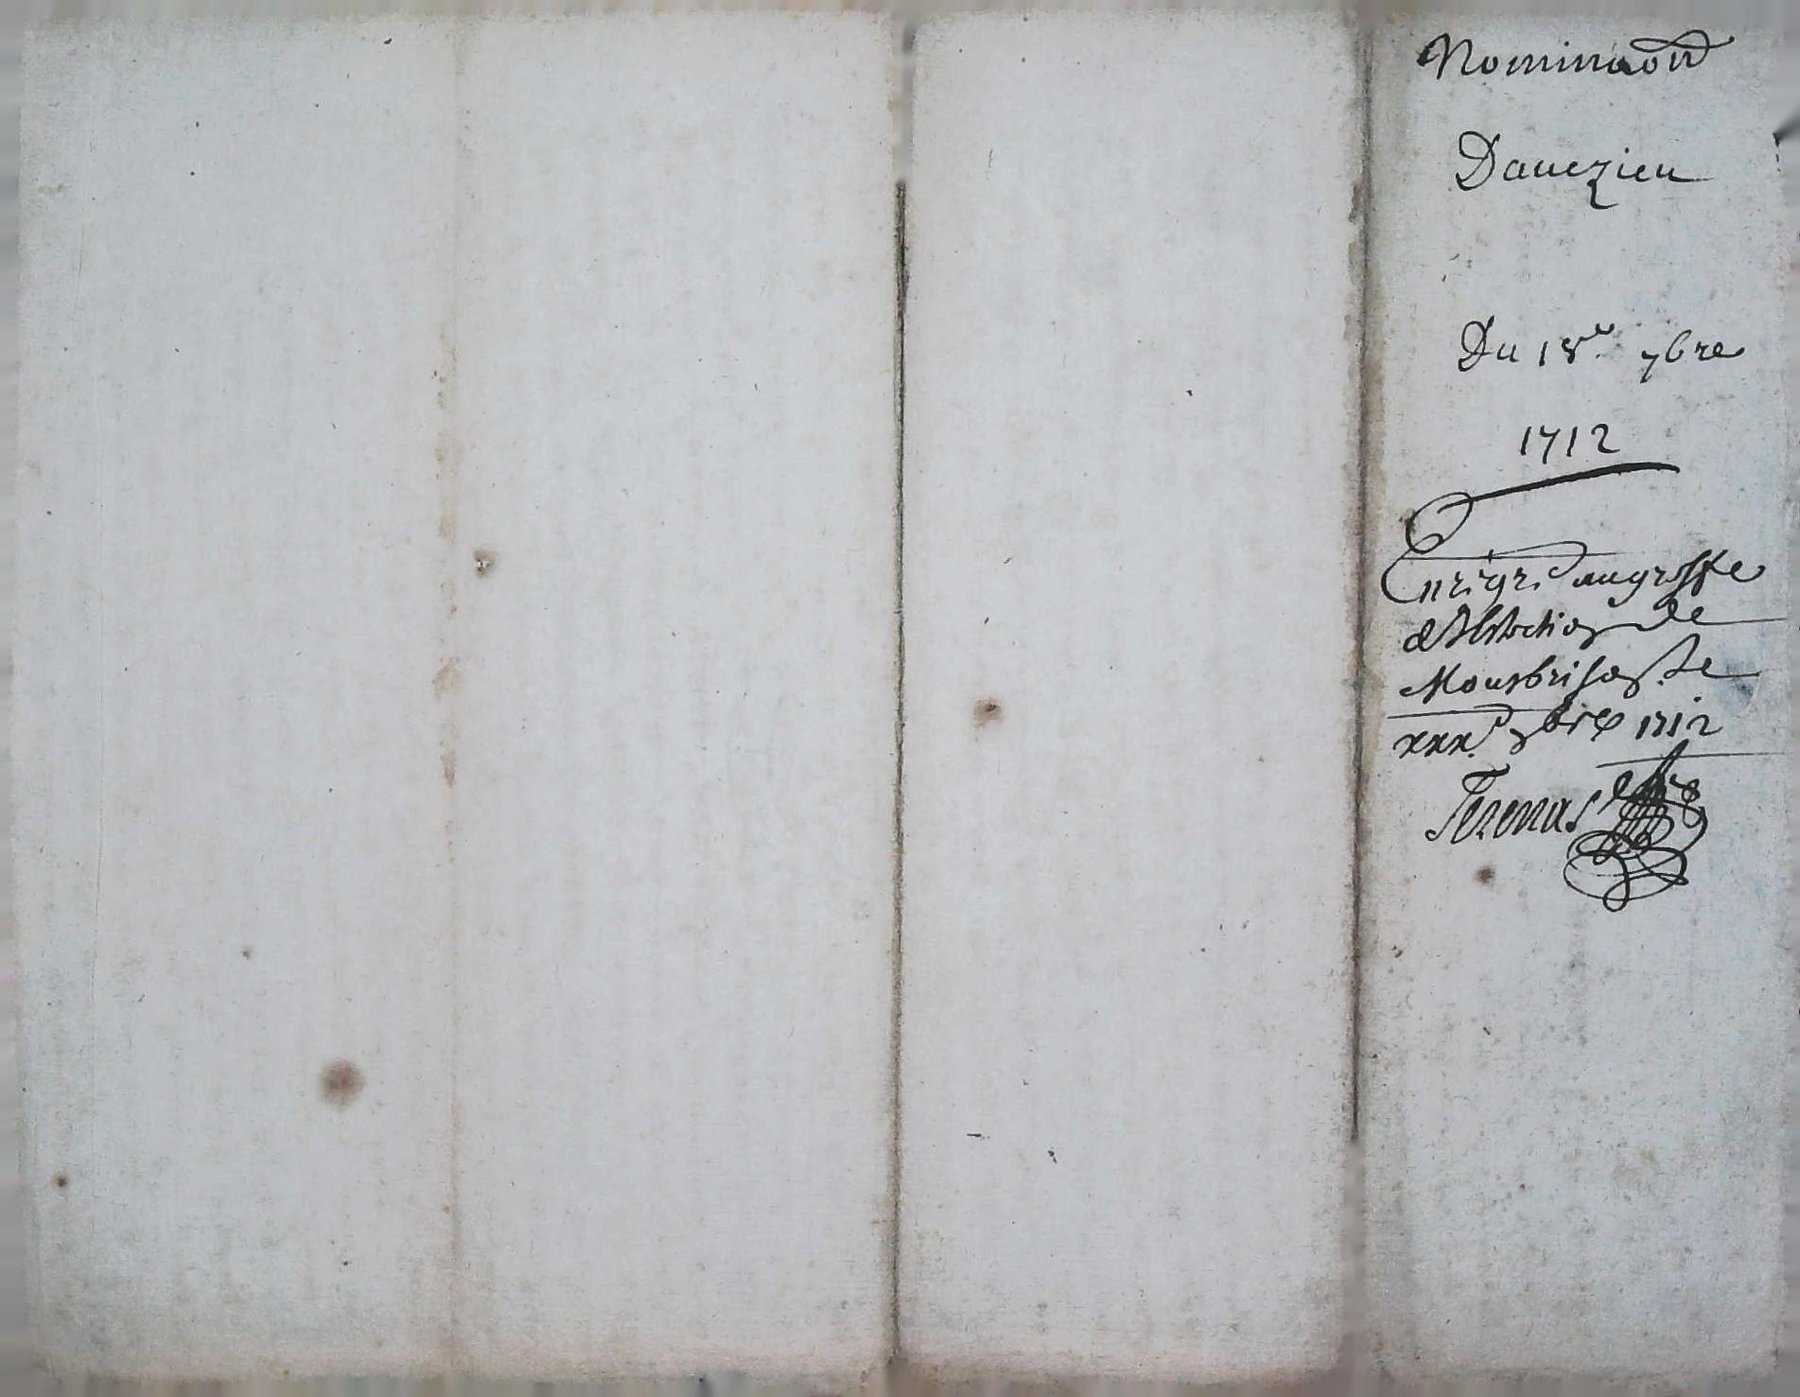 Nominaon
Davezieu
Du 18e 7bre
1712
Enregr. au greffe
de l'Election de
Montbrison Le
xxx 7bre 1712
Terenas